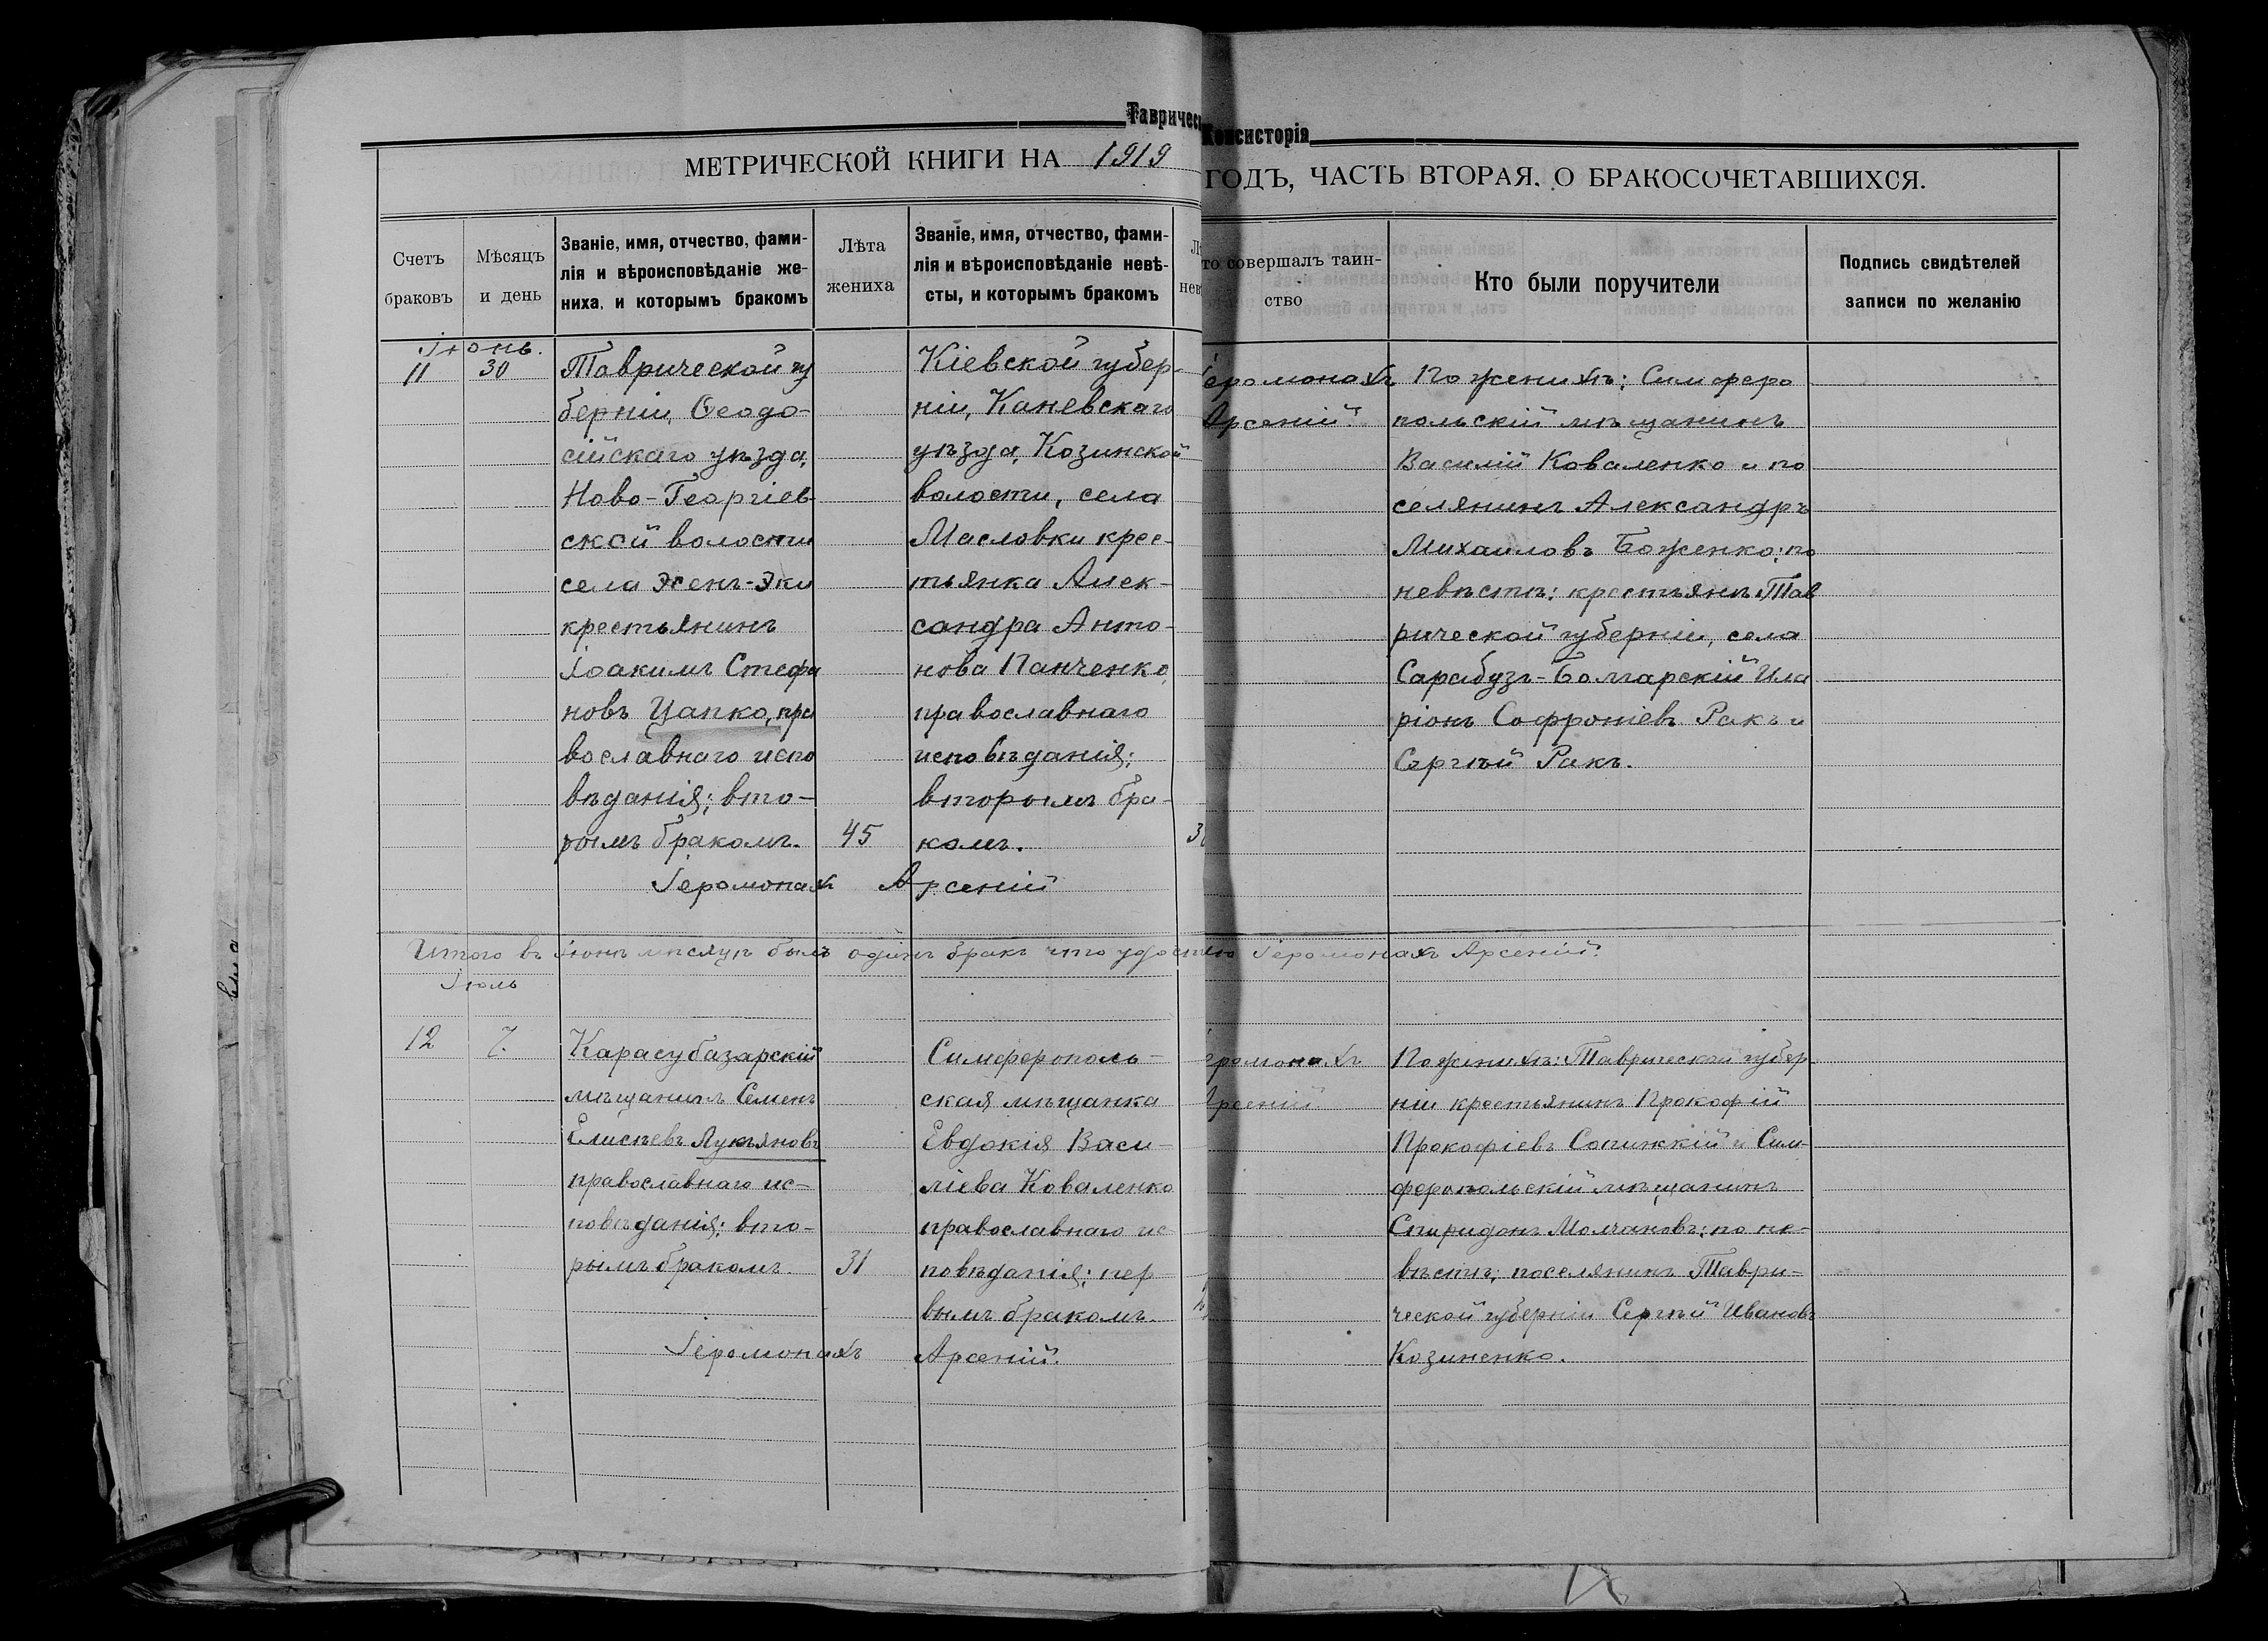 Тавричес
Консисторія
МЕТРИЧЕСКОЙ КНИГИ НА 1919
ГОДЪ, ЧАСТЬ ВТОРАЯ. О БРАКОСОЧЕТАВШИХСЯ.
Счетъ
браковъ
Мѣсяцъ
и день
Званіе, имя, отчество, фами-
лія и вѣроисповѣданіе же-
ниха, и которымъ бракомъ
Лѣта
жениха
Званіе, имя, отчество, фами-
лія и вѣроисповѣданіе невѣ-
сты, и которымъ бракомъ
Лѣ
нев
то совершалъ таин-
ство
Кто были поручители
Подпись свидѣтелей
записи по желанію
Іюнь.
11
30
Таврической гу
берніи, Ѳеодо-
сійскаго уѣзда,
Ново-Георгіев
ской волости
села Эсенъ-Эки
крестьянинъ
Іоакимъ Стефа
новъ Цапко, пра
вославнаго испо
вѣданія; вто-
рымъ бракомъ.
45
Кіевской губер-
ніи, Каневскаго
уѣзда, Козинской
волости, села
Масловки крес-
тьянка Алек-
сандра Анто-
нова Панченко,
православнаго
исповѣданія;
вторымъ бра-
комъ.
3
Іеромонахъ Арсеній
Іеромонахъ
Арсеній.
По женихѣ: Симферо
польскій мѣщанинъ
Василій Коваленко и по
селянинъ Александръ
Михаиловъ Боженко; по
невѣстѣ: крестьянъ Тав
рической губерніи, села
Сарабузъ-Болгарскій Ила
ріонъ Софроніевъ Ракъ и
Сергѣй Ракъ.
Итого въ Іюнѣ мѣсяцѣ былъ одинъ бракъ что удостою Іеромонахъ Арсеній.
Іюль
12
7.
Карасубазарскій
мѣщанинъ Семенъ
Елисѣевъ Лукьяновъ
православнаго ис-
повѣданія; вто-
рымъ бракомъ.
31
Симферополь-
ская мѣщанка
Евдокія Васи-
ліева Коваленко
православнаго ис-
повѣданія; пер
вымъ бракомъ.
2
Іеромонахъ Арсеній.
еромонахъ
Арсеній.
По женихѣ: Таврической губер-
ніи крестьянинъ Прокофій
Прокофіевъ Сопижкій и Сим-
феропольскій мѣщанинъ
Спиридонъ Молчановъ; по не-
вѣстѣ; поселянинъ Таври-
ческой губерніи Сергѣй Ивановъ
Козиненко.